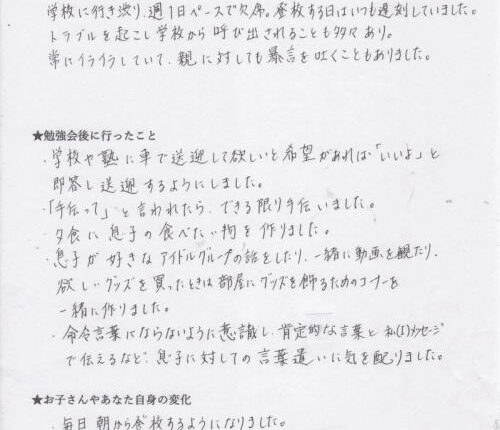 学校に行き渋り、週1日ペースで欠席。登校する日はいつも遅刻していました。
トラブルを起こし学校から呼び出されることも多々あり。
常にイライラしていて、親に対しても暴言を吐くこともありました。
★勉強会後に行ったこと
・学校や塾に車で送迎して欲しいと希望があれば「いいよ」と
即答し送迎するようにしました。
・「手伝って」と言われたら、できる限り手伝いました。
・夕食に息子の食べたい物を作りました。
・息子が好きなアイドルグループの話をしたり、一緒に動画を観たり、
欲しいグッズを買ったときは部屋にグッズを飾るためのコーナーを
一緒に作りました。
・命令言葉にならないように意識し、肯定的な言葉と私(I)メッセージ
で伝えるなど、息子に対しての言葉遣いに気を配りました。
★お子さんやあなた自身の変化
・毎日朝から登校するようになりました。